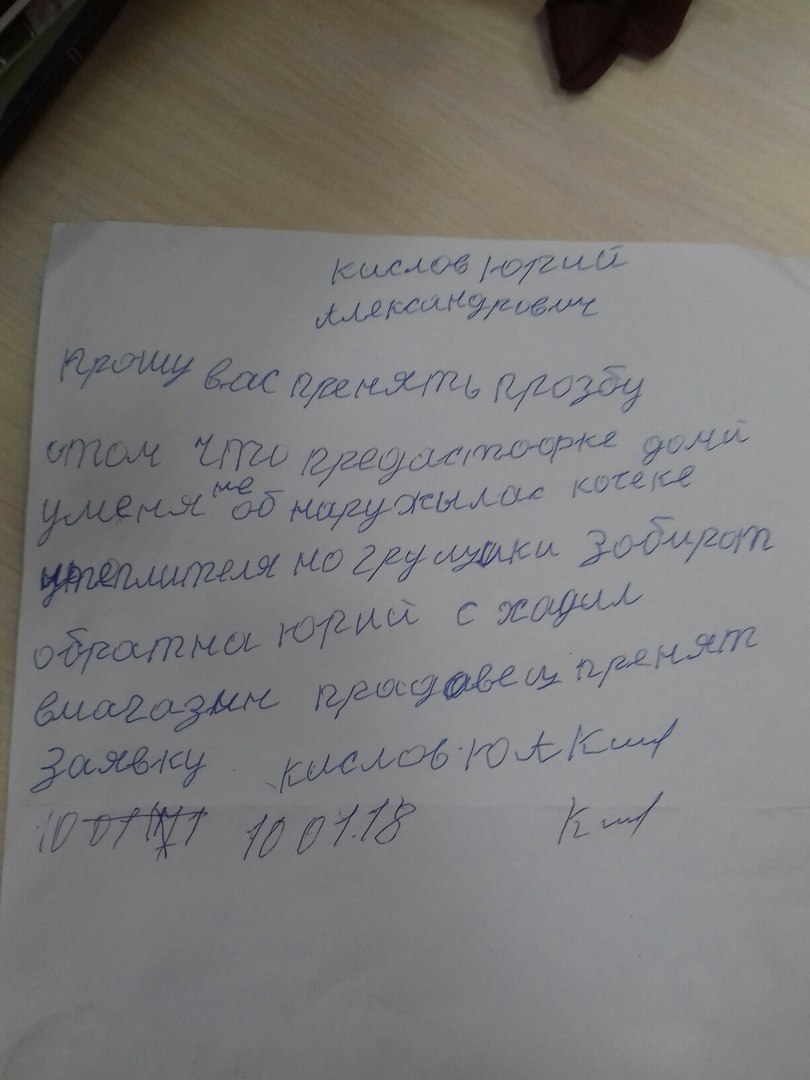 Кислов Юрий
Александрович
прошу вас пренять прозбу
отом что предастоорке домй
уменя не обнаружылас кочеке
утеплителя но грущики зобират
обратна юрий с хадил
вмагазын прадовец пренят
заявку кислов Ю А
10 01 18